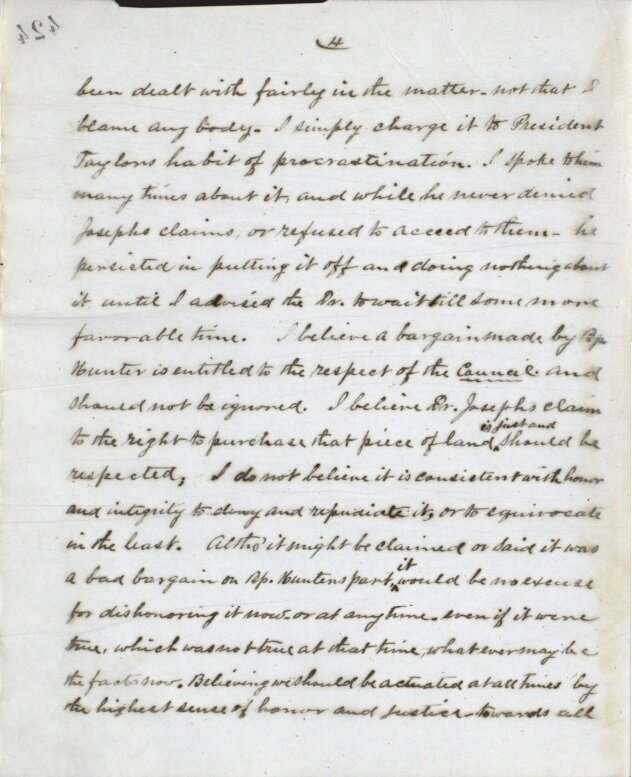 424
4
been dealt with fairly in the matter - not that I
blame any body - I simply charge it to President
Taylors habit of procrastination. I spoke to him
many times about it, and while he never denied
Josephs claims, or refused to acceed to them - he
persisted in putting it off and doing nothing about
it, until I advised the Dr. to wait till some more
favorable time. I believe a bargain made by Bp.
Hunter is entitled to the respect of the Council and
should not be ignored. I believe Dr. Josephs claim
to the right to purchase that piece of land, is just and should be
respected, I do not believe it is consistent with honor
and integrity to deny and repudiate it, or to equivocate
in the least. Altho' it might be claimed or said it was
a bad bargain on Bp. Hunters part, it would be no excuse
for dishonoring it now - or at any time - even if it were
true, which was not true at that time, what ever may be
the facts now. Believing we should be actuated at all times by
the highest sense of honor and justice - towards all